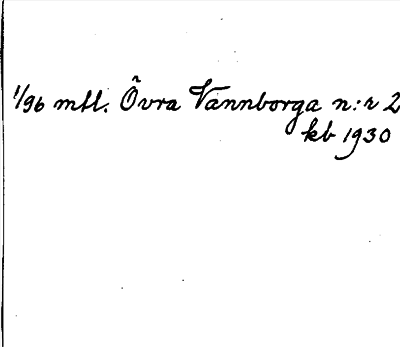 1/96 mtl. Övra Vannborga n:r 2
kb 1930